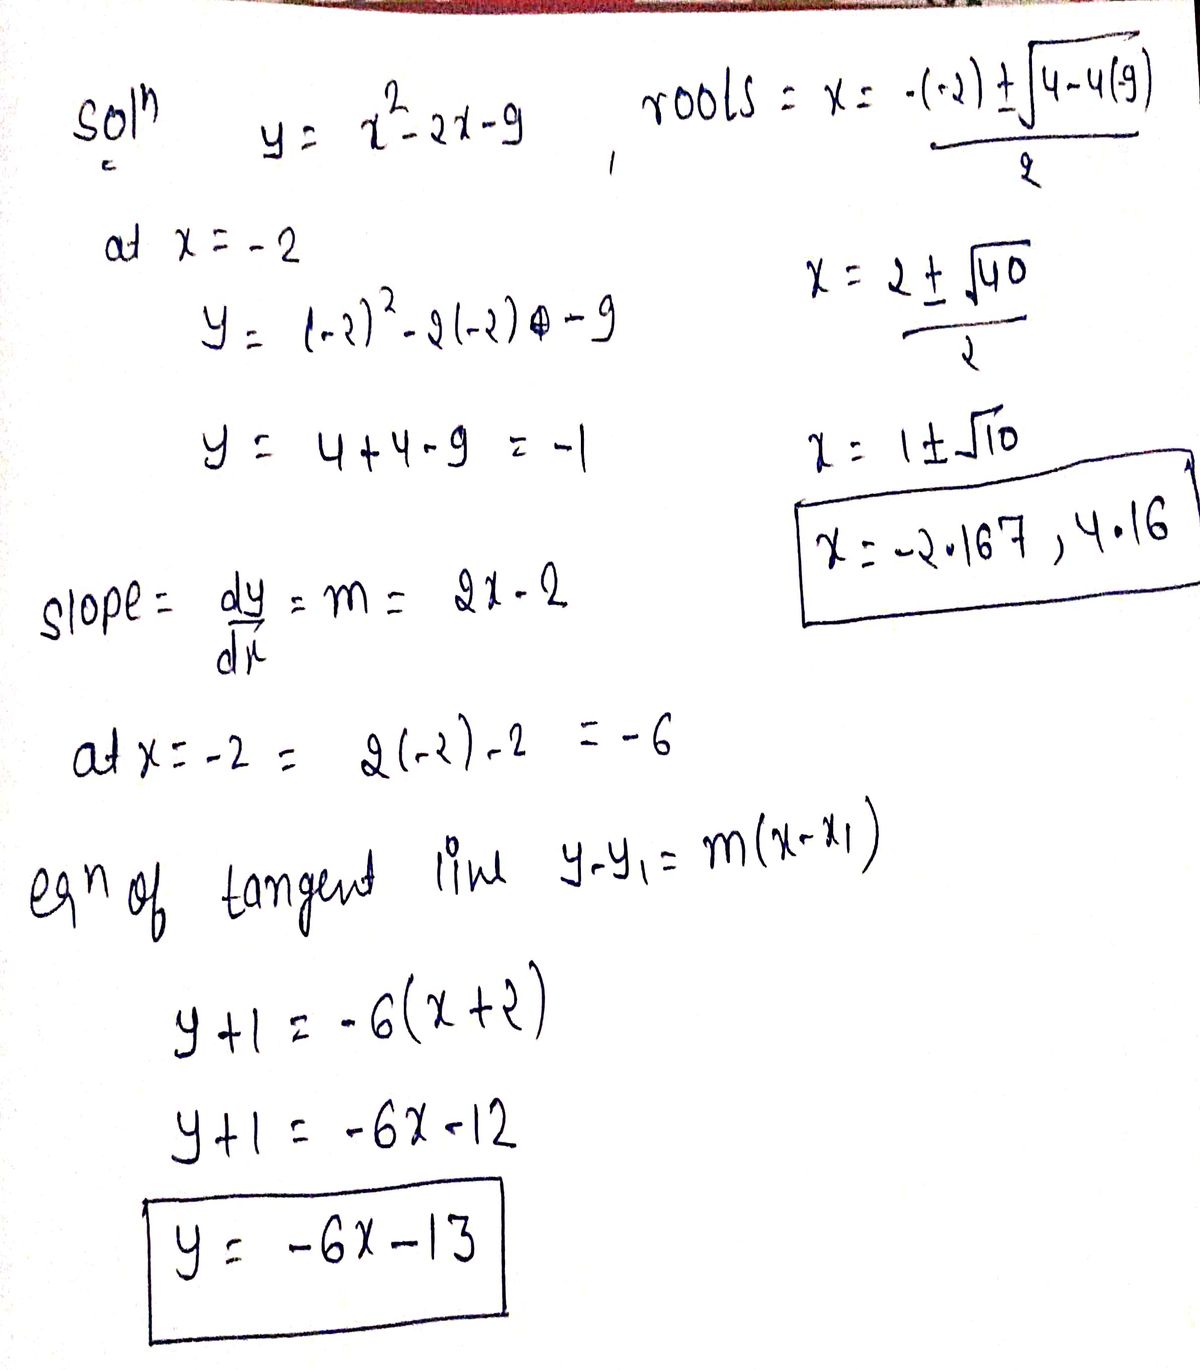 Solⁿ y = x² - 2x - 9 , roots = x = -(-2) ± √4-4(-9) / 2
at x = -2
y = (-2)² - 2(-2) - 9
y = 4 + 4 - 9 = -1
x = 2 ± √40 / 2
x = 1 ± √10
x = -2.167 , 4.16
slope = dy/dx = m = 2x - 2
at x = -2 = 2(-2) - 2 = -6
eqn of tangent line y - y₁ = m(x - x₁)
y + 1 = -6(x + 2)
y + 1 = -6x - 12
y = -6x - 13